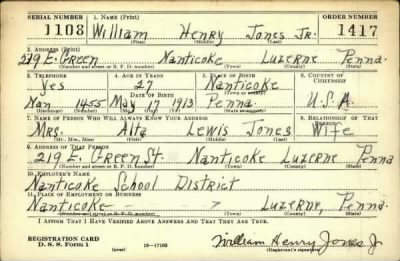 SERIAL NUMBER 1. NAME (Print) ORDER NUMBER
1108 William Henry Jones Jr. 1417
(First) (Middle) (Last)
2. ADDRESS (Print)
219 E. Green Nanticoke Luzerne Penna.
(Number and street or R. F. D. number) (Town) (County) (State)
3. TELEPHONE 4. AGE IN YEARS 5. PLACE OF BIRTH 6. COUNTRY OF CITIZENSHIP
Yes 27 Nanticoke
DATE OF BIRTH (Town or county)
Nan 1455 May 17 1913 Penna U.S.A.
(Exchange) (Number) (Mo.) (Day) (Yr.) (State or country)
7. NAME OF PERSON WHO WILL ALWAYS KNOW YOUR ADDRESS 8. RELATIONSHIP OF THAT PERSON
Mrs. Alta Lewis Jones Wife
(Mr., Mrs., Miss) (First) (Middle) (Last)
9. ADDRESS OF THAT PERSON
219 E. Green St. Nanticoke Luzerne Penna
(Number and street or R. F. D. number) (Town) (County) (State)
10. EMPLOYER'S NAME
Nanticoke School District
11. PLACE OF EMPLOYMENT OR BUSINESS
Nanticoke Luzerne, Penna.
(Number and street or R. F. D. number) (Town) (County) (State)
I AFFIRM THAT I HAVE VERIFIED ABOVE ANSWERS AND THAT THEY ARE TRUE.
REGISTRATION CARD
D. S. S. Form 1 (over) 16-17105 William Henry Jones Jr
(Registrant's signature)